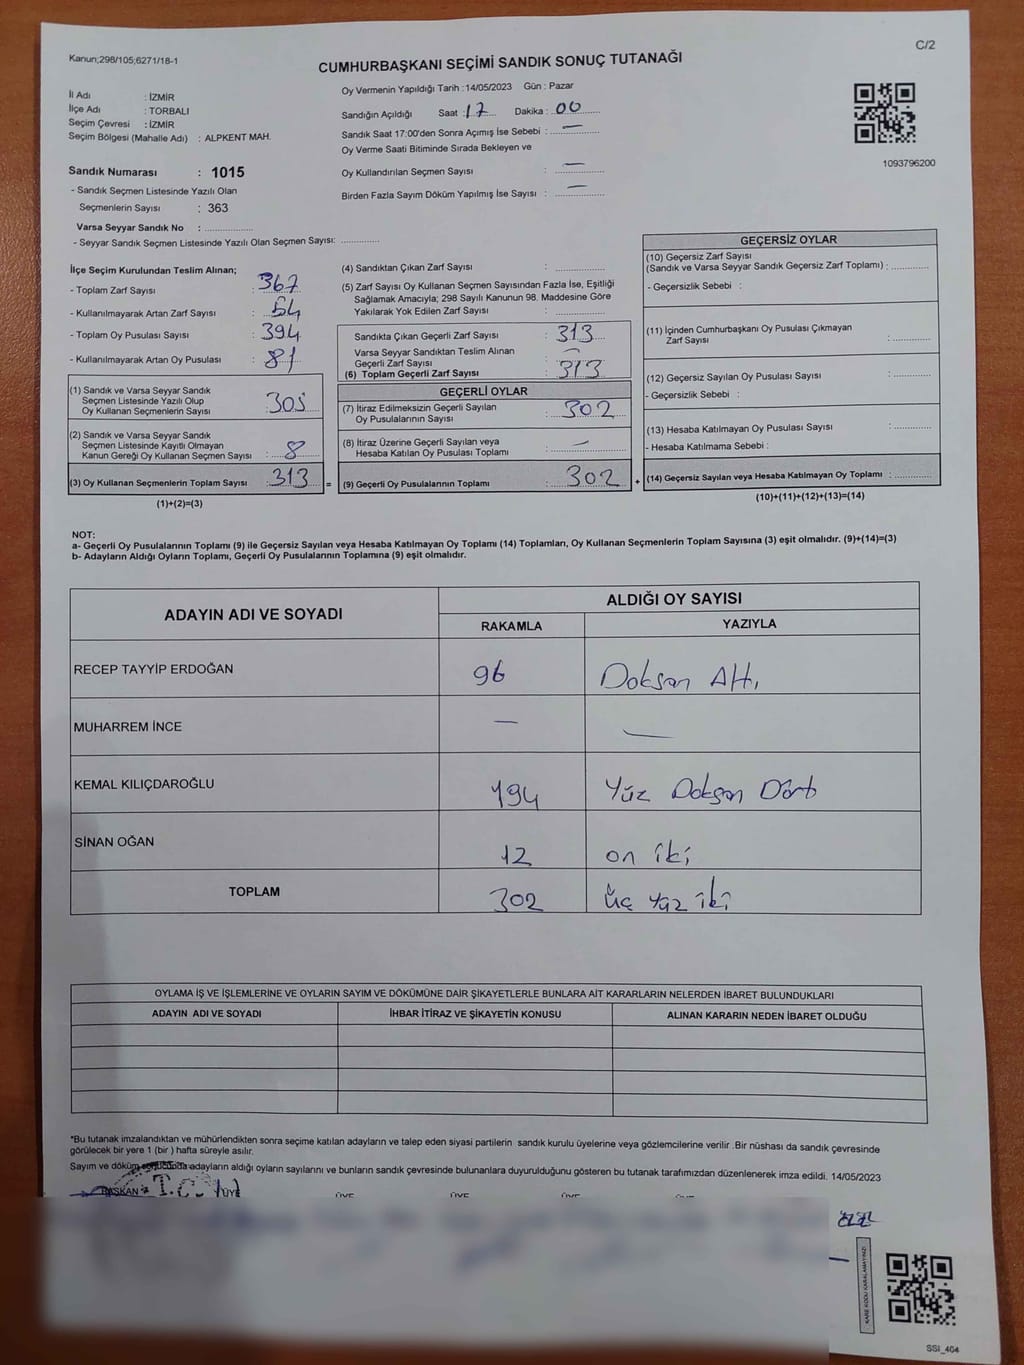 C/2
Kanun;298/105;6271/18-1
CUMHURBAŞKANI SEÇİMİ SANDIK SONUÇ TUTANAĞI
İl Adı : İZMİR
İlçe Adı : TORBALI
Seçim Çevresi : İZMİR
Seçim Bölgesi (Mahalle Adı) : ALPKENT MAH.
Sandık Numarası : 1015
- Sandık Seçmen Listesinde Yazılı Olan
Seçmenlerin Sayısı : 363
Varsa Seyyar Sandık No : ....................
- Seyyar Sandık Seçmen Listesinde Yazılı Olan Seçmen Sayısı: ..............
Oy Vermenin Yapıldığı Tarih :14/05/2023 Gün : Pazar
Sandığın Açıldığı Saat : 17 Dakika : 00
Sandık Saat 17:00'den Sonra Açımış İse Sebebi : —
Oy Verme Saati Bitiminde Sırada Bekleyen ve
Oy Kullandırılan Seçmen Sayısı : —
Birden Fazla Sayım Döküm Yapılmış İse Sayısı : —
1093796200
İlçe Seçim Kurulundan Teslim Alınan;
- Toplam Zarf Sayısı : 367
- Kullanılmayarak Artan Zarf Sayısı : 54
- Toplam Oy Pusulası Sayısı : 394
- Kullanılmayarak Artan Oy Pusulası : 81
(1) Sandık ve Varsa Seyyar Sandık
Seçmen Listesinde Yazılı Olup
Oy Kullanan Seçmenlerin Sayısı : 305
(2) Sandık ve Varsa Seyyar Sandık
Seçmen Listesinde Kayıtlı Olmayan
Kanun Gereği Oy Kullanan Seçmen Sayısı : 8
(3) Oy Kullanan Seçmenlerin Toplam Sayısı : 313
(1)+(2)=(3)
(4) Sandıktan Çıkan Zarf Sayısı : .............
(5) Zarf Sayısı Oy Kullanan Seçmen Sayısından Fazla İse, Eşitliği
Sağlamak Amacıyla; 298 Sayılı Kanunun 98. Maddesine Göre
Yakılarak Yok Edilen Zarf Sayısı : .............
Sandıkta Çıkan Geçerli Zarf Sayısı : 313
Varsa Seyyar Sandıktan Teslim Alınan
Geçerli Zarf Sayısı : —
(6) Toplam Geçerli Zarf Sayısı : 313
GEÇERLİ OYLAR
(7) İtiraz Edilmeksizin Geçerli Sayılan
Oy Pusulalarının Sayısı : 302
(8) İtiraz Üzerine Geçerli Sayılan veya
Hesaba Katılan Oy Pusulası Toplamı : —
= (9) Geçerli Oy Pusulalarının Toplamı : 302
GEÇERSİZ OYLAR
(10) Geçersiz Zarf Sayısı
(Sandık ve Varsa Seyyar Sandık Geçersiz Zarf Toplamı) : .............
- Geçersizlik Sebebi :
(11) İçinden Cumhurbaşkanı Oy Pusulası Çıkmayan
Zarf Sayısı : .............
(12) Geçersiz Sayılan Oy Pusulası Sayısı : .............
- Geçersizlik Sebebi :
(13) Hesaba Katılmayan Oy Pusulası Sayısı : .............
- Hesaba Katılmama Sebebi :
+ (14) Geçersiz Sayılan veya Hesaba Katılmayan Oy Toplamı : .............
(10)+(11)+(12)+(13)=(14)
NOT:
a- Geçerli Oy Pusulalarının Toplamı (9) ile Geçersiz Sayılan veya Hesaba Katılmayan Oy Toplamı (14) Toplamları, Oy Kullanan Seçmenlerin Toplam Sayısına (3) eşit olmalıdır. (9)+(14)=(3)
b- Adayların Aldığı Oyların Toplamı, Geçerli Oy Pusulalarının Toplamına (9) eşit olmalıdır.
ADAYIN ADI VE SOYADI ALDIĞI OY SAYISI
RAKAMLA YAZIYLA
RECEP TAYYİP ERDOĞAN 96 Doksan Altı
MUHARREM İNCE — —
KEMAL KILIÇDAROĞLU 194 Yüz Doksan Dört
SİNAN OĞAN 12 on iki
TOPLAM 302 Üç yüz iki
OYLAMA İŞ VE İŞLEMLERİNE VE OYLARIN SAYIM VE DÖKÜMÜNE DAİR ŞİKAYETLERLE BUNLARA AİT KARARLARIN NELERDEN İBARET BULUNDUKLARI
ADAYIN ADI VE SOYADI İHBAR İTİRAZ VE ŞİKAYETİN KONUSU ALINAN KARARIN NEDEN İBARET OLDUĞU
*Bu tutanak imzalandıktan ve mühürlendikten sonra seçime katılan adayların ve talep eden siyasi partilerin sandık kurulu üyelerine veya gözlemcilerine verilir .Bir nüshası da sandık çevresinde
görülecek bir yere 1 (bir ) hafta süreyle asılır.
Sayım ve döküm sonucunda adayların aldığı oyların sayılarını ve bunların sandık çevresinde bulunanlara duyurulduğunu gösteren bu tutanak tarafımızdan düzenlenerek imza edildi. 14/05/2023
BAŞKAN T.C. ÜYE ÜYE ÜYE ÜYE ÜYE
KARE KODU KARALAMAYINIZ!
SSİ_464